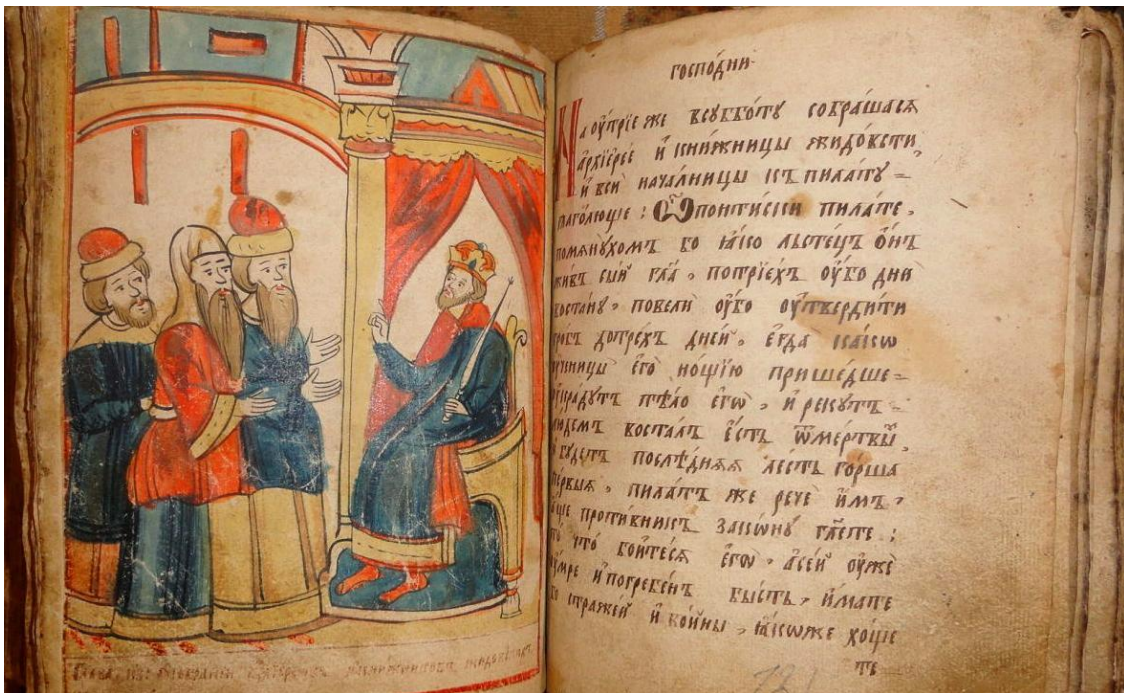 Глава собрании
господни·
На оу҆́трїе же всуббо́ту собра́шасѧ
а҆рхїере́е и҆ кни́жницы жидо́всти
и҆ вси нача́лницы къ пила́ту =
глаго́люще : Ѽ понти́йски пила́те,
помѧну́хомъ бо ꙗ҆́ко льсте́цъ ѻ҆́нъ
жи́въ сый гл҃а, потрїе́хъ оу҆́бо дни
воста́ну, повели̑ оу҆́бо оу҆тверди́ти
гро́бъ дотре́хъ дне́й, е҆гда̀ ка́кѡ
оученицы̀ е҆гѡ̀ но́щїю прише́дше =
оукра́дутъ тѣ́ло е҆гѡ̀, и҆ реку́тъ =
лю́демъ воста́лъ е҆́сть ѿме́ртвы,
и бу́детъ послѣ́днѧѧ ле́сть го́рша
пе́рвыѧ, пила́тъ же речѐ и҆́мъ,
а҆ще проти́вникъ зако́ну гл҃ете :
то̀ что́ бои́тесѧ е҆гѡ̀, а҆се́й оу҆жѐ
оумре и҆погребе́нъ бы́сть, и҆́мате
бо страже́й и҆ во́йны, ꙗ҆́коже хо́ще
те